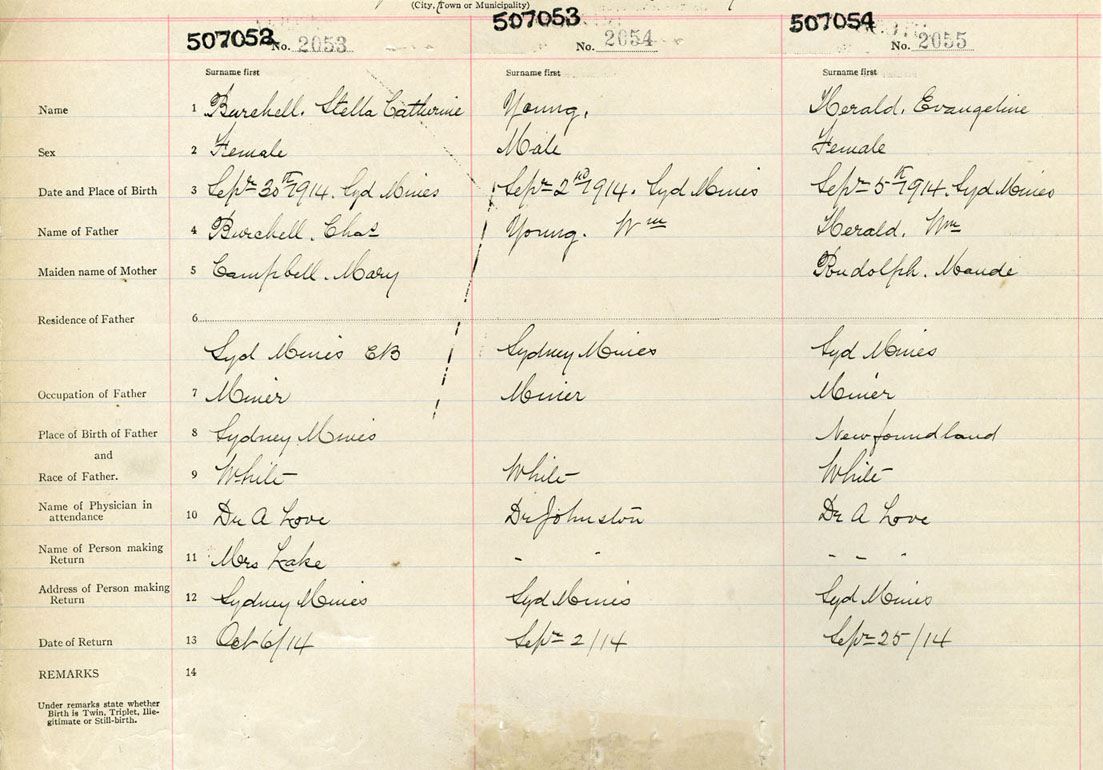 (City, Town or Municipality)
507052 No. 2053 507053 No. 2054 507054 No. 2055
Surname first Surname first Surname first
Name 1 Burchell. Stella Catherine Young. Herald. Evangeline
Sex 2 Female Male Female
Date and Place of Birth 3 Sepr 30th 1914. Syd Mines Sepr 2nd 1914. Syd Mines Sepr 5th 1914. Syd Mines
Name of Father 4 Burchell. Chas Young. Wm Herald. Wm
Maiden name of Mother 5 Campbell. Mary Rudolph. Maude
Residence of Father 6
Syd Mines CB Sydney Mines Syd Mines
Occupation of Father 7 Miner Miner Miner
Place of Birth of Father 8 Sydney Mines Newfoundland
and
Race of Father. 9 White White White
Name of Physician in
attendance 10 Dr A Love Dr Johnston Dr A Love
Name of Person making
Return 11 Mrs Lake - " - - "
Address of Person making
Return 12 Sydney Mines Syd Mines Syd Mines
Date of Return 13 Oct 6/14 Sepr 2/14 Sepr 25/14
REMARKS 14
Under remarks state whether
Birth is Twin, Triplet, Ille-
gitimate or Still-birth.